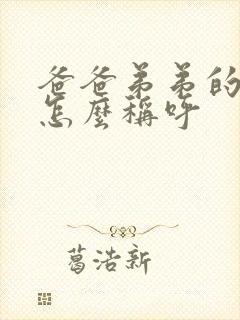 爸爸弟弟的
怎麼稱呼
葛浩新